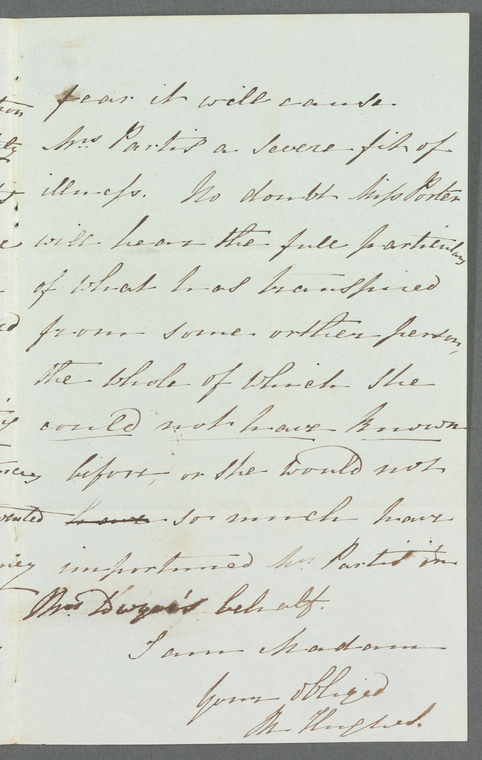 fear it will cause
Mrs Partis a severe fit of
illness. No doubt Miss Porter
will hear the full particulars
of what has transpired
from some orther person,
the whole of which she
could not have known
before, or she would not
have so much have
importuned Mrs Partis in
Mrs Dwyer's behalf.
I am Madam
Your obliged
M Hughes.